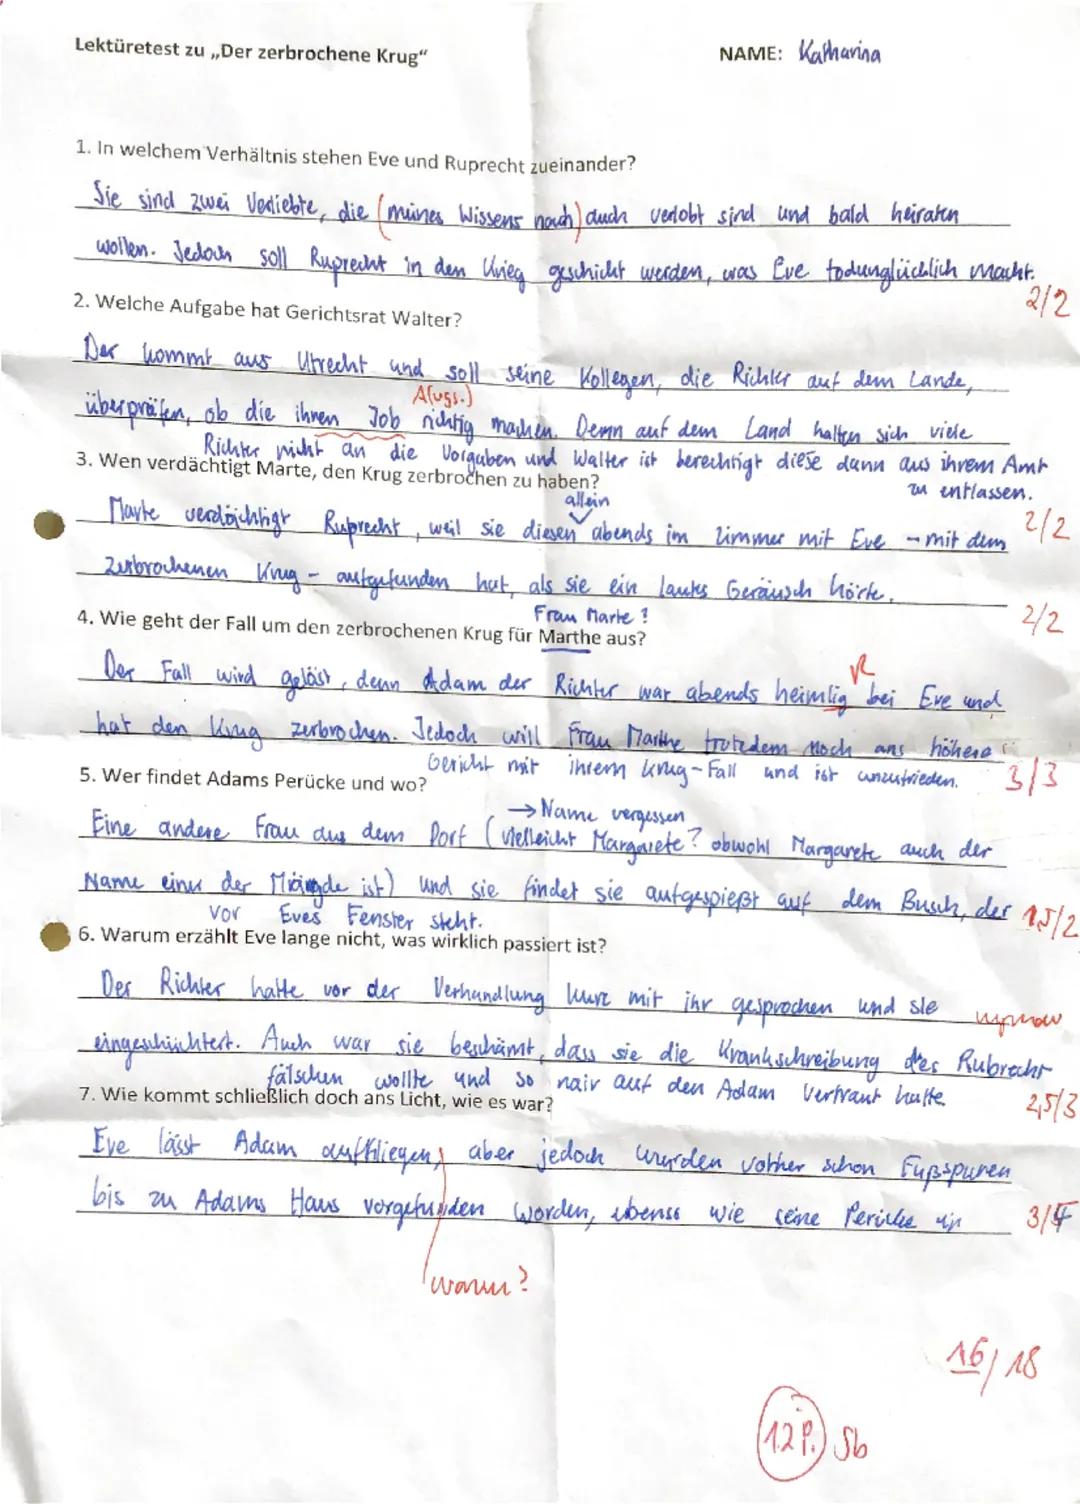 Lektüretest zu „Der zerbrochene Krug“
NAME: Katharina
1. In welchem Verhältnis stehen Eve und Ruprecht zueinander?
Sie sind zwei Verliebte, die (meines Wissens nach) auch verlobt sind und bald heiraten
wollen. Jedoch soll Ruprecht in den Krieg geschickt werden, was Eve todunglücklich macht.
2/2
2. Welche Aufgabe hat Gerichtsrat Walter?
Der kommt aus Utrecht und soll seine Kollegen, die Richter auf dem Lande,
A(uss.)
überprüfen, ob die ihren Job richtig machen. Denn auf dem Land halten sich viele
Richter nicht an die Vorgaben und Walter ist berechtigt diese dann aus ihrem Amt
zu entlassen.
2/2
3. Wen verdächtigt Marte, den Krug zerbrochen zu haben?
allein
Marte verdächtigt Ruprecht, weil sie diesen abends im Zimmer mit Eve - mit dem
zerbrochenen Krug - aufgefunden hat, als sie ein lautes Geräusch hörte.
2/2
Frau Marte?
4. Wie geht der Fall um den zerbrochenen Krug für Marthe aus?
R
Der Fall wird gelöst, denn Adam der Richter war abends heimlig bei Eve und
hat den Krug zerbrochen. Jedoch will Frau Marthe trotzdem noch ans höhere
Gericht mit ihrem Krug-Fall und ist unzufrieden.
3/3
5. Wer findet Adams Perücke und wo?
→ Name vergessen
Eine andere Frau aus dem Dorf (vielleicht Margarete? obwohl Margarete auch der
Name einer der Mägde ist) und sie findet sie aufgespießt auf dem Busch, der
vor Eves Fenster steht.
1,5/2
6. Warum erzählt Eve lange nicht, was wirklich passiert ist?
Der Richter hatte vor der Verhandlung kurz mit ihr gesprochen und sie
eingeschüchtert. Auch war sie beschämt, dass sie die Krankschreibung des Rubrecht
fälschen wollte und so naiv auf den Adam vertraut hatte.
2,5/3
7. Wie kommt schließlich doch ans Licht, wie es war?
Eve lässt Adam auffliegen, aber jedoch wurden vorher schon Fußspuren
bis zu Adams Haus vorgefunden worden, ebenso wie seine Perücke
3/4
wann?
16/18
12 P. Sb